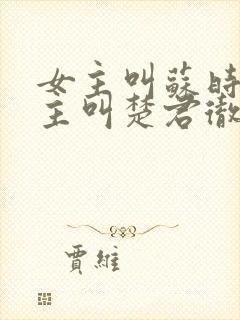 女主叫蘇時
主叫楚君徹
賈維